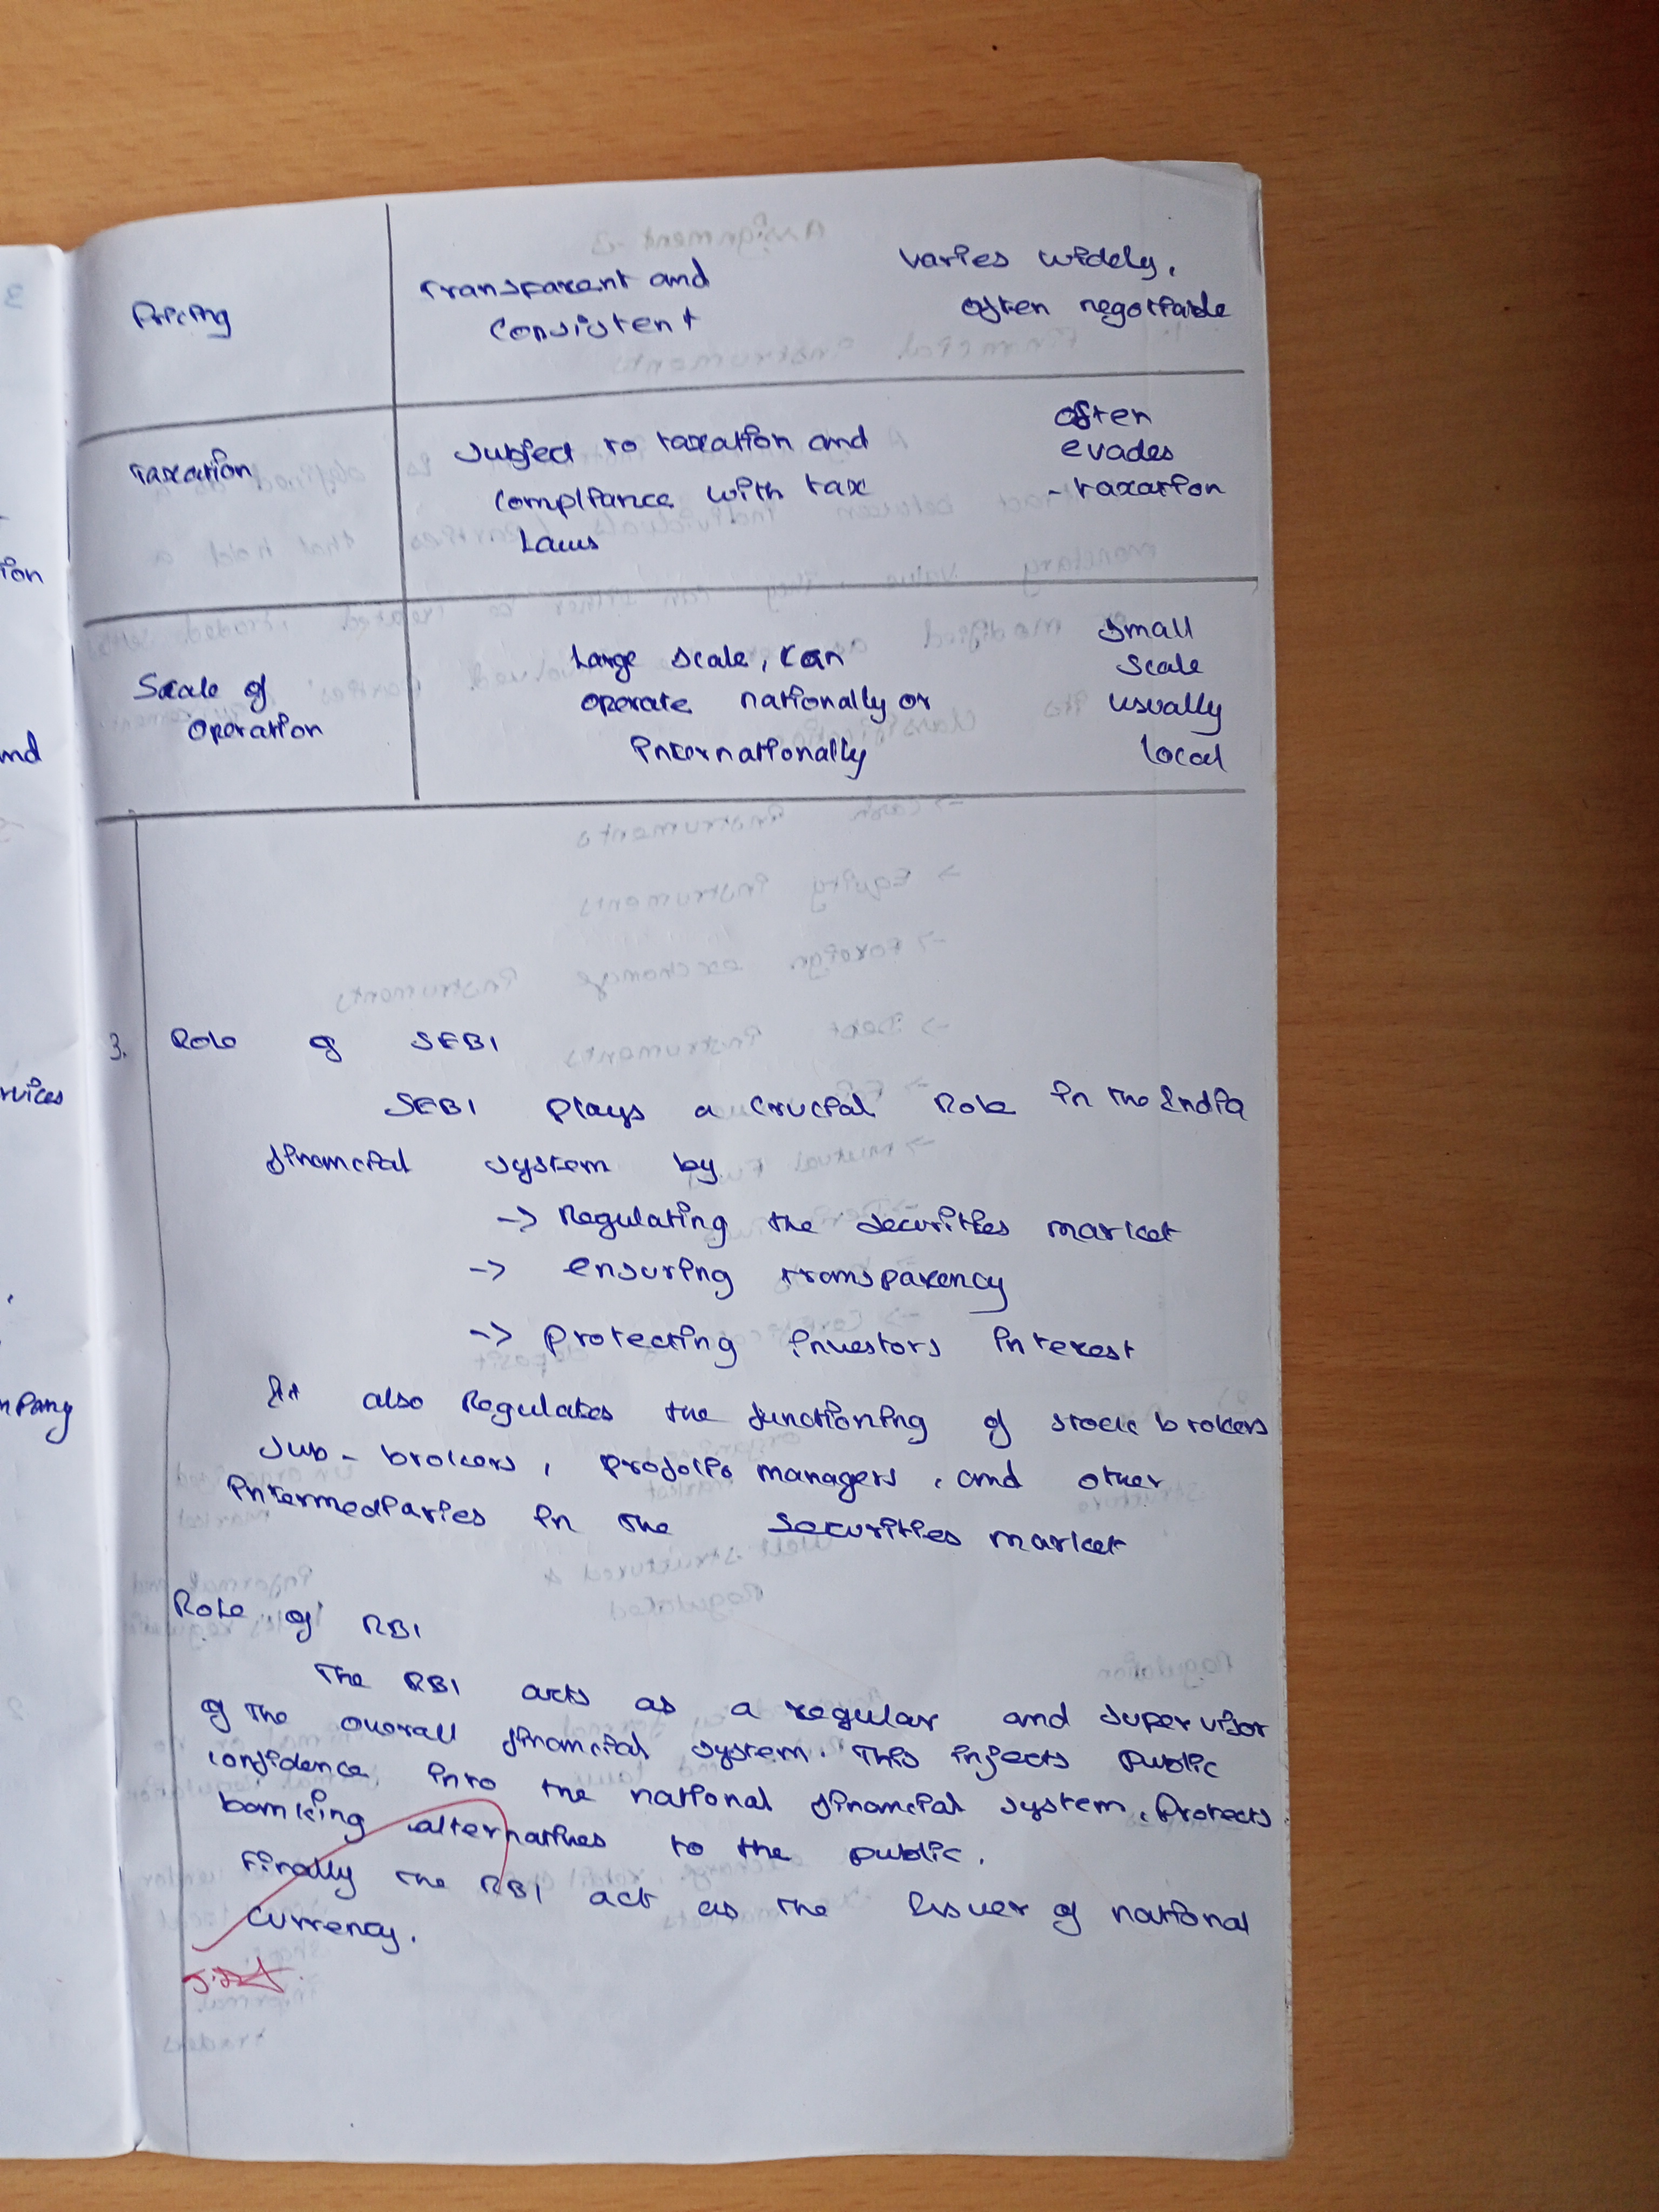 Pricing
Transparent and
consistent
varies widely,
often negotiable
Taxation
Subject to taxation and
compliance with tax
Laws
often
evades
- taxation
Scale of
operation
Large scale, can
operate nationally or
internationally
small
scale
usually
local
3. Role of SEBI
SEBI plays a crucial Role in the India
financial system by
-> Regulating the securities market
-> ensuring transparency
-> protecting investors interest
It also Regulates the functioning of stock brokers
sub - brokers, managers, and other
intermediaries in the securities market
Role of RBI
The RBI acts as a regular and supervisor
of the overall financial system. This injects public
confidence into the national financial system, Protects
banking alternatives to the public.
Finally the RBI act as the issuer of national
currency.
ion
nd
rvices
mpany